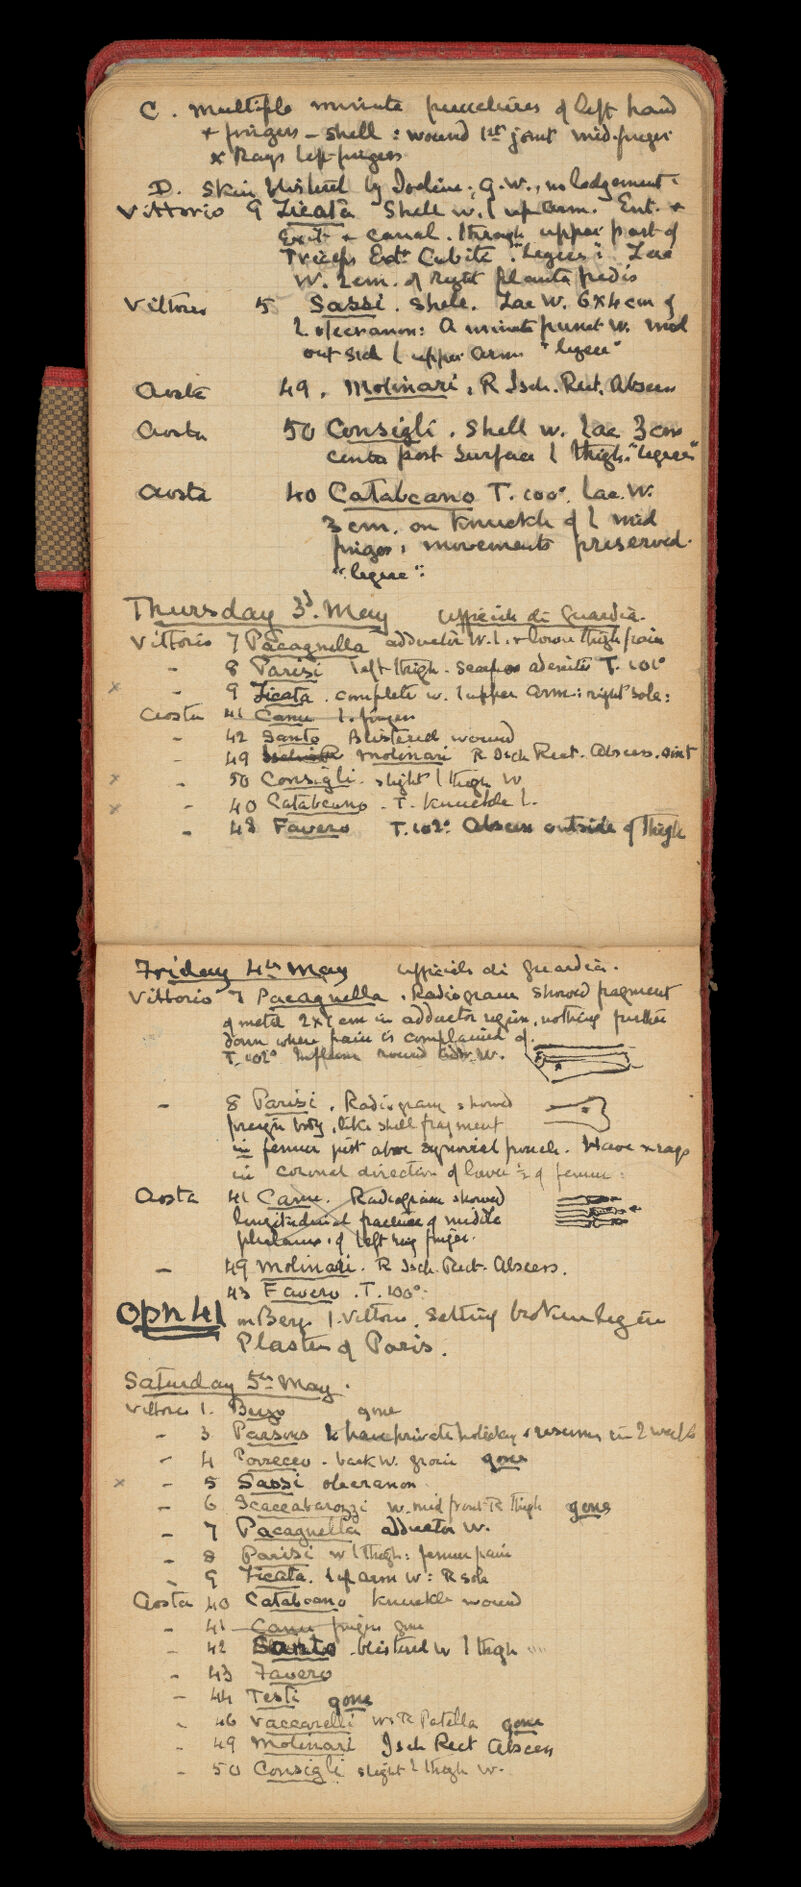 C. Multiple minute punctures of left hand
+ fingers – shell : wound 1st joint mid-finger
x Rays left fingers
D. Skin blistered by Iodine; g.w., no lodgement.
Vittorio 9 Zicata Shell w. l up arm. Ent. +
Exit + canal. through upper part of
Triceps Extr Cubite. "legere": Lac
W. 2cm. of right planta pedis
Vittorio 5 Sassi. Shell. Lac W. 6x4 cm of
L olecranon: A minute punct w. mid
out side l upper arm "legere"
Aosta 49. Molinari. R Isch. Rect. Abscess
Aosta 50 Consigli. Shell w. Lac 3 cm
centre post Surface l thigh. "legere"
Aosta 40 Catabeano T. 100°. Lac. W.
3 cm. on knuckle of l mid
finger, movements preserved.
"legere":
Thursday 3d. May Ufficiale di Guardia.
Vittorio 7 Pacagnella adductor W. l. + lower thigh pain
– 8 Parisi left thigh. adenitis T. 101°
x – 9 Zicata. complete w. l upper arm: right sole:
Aosta 41 Canu l. finger
– 42 Santo Blistered wound
– 49 Molinari R Isch Rect. Abscess.
x – 50 Consigli. slight l thigh W
x – 40 Catabeano. T. knuckle l.
– 43 Favero T. 102° Abscess outside of thigh
Friday 4th May Ufficiale di Guardia.
Vittorio 7 Pacagnella. Radiogram showed fragment
of metal 2x1 cm in adductor region, nothing further
down where pain is complained of.
T. 102° round W.
– 8 Parisi. Radiogram showed
foreign body, like shell fragment
in femur just above synovial pouch. Have x rays
in coronal direction of lower ½ of femur.
Aosta 41 Canu. Radiogram showed
longitudinal fracture of middle
phalanx of left ring finger.
– 49 Molinari. R Isch. Rect. Abscess.
43 Favero. T. 100°.
Opn 41 on Bergo 1. Vittorio. Setting broken leg in
Plaster of Paris.
Saturday 5th May.
Vittorio 1. Bergo gone
– 3 Parsons to have private holiday & resume in 2 weeks
– 4 Porceceo. back w. groin gone
x – 5 Sassi olecranon.
– 6 Scaccabarozzi w. mid front R thigh gone
– 7 Pacagnella adductor W.
– 8 Parisi w l thigh: femur pain
– 9 Zicata. l up arm W: R sole
Aosta 40 Catabeano knuckle wound
– 41 Canu finger gone
– 42 Santo. blistered w l thigh
– 43 Favero
– 44 Testi gone
– 46 Vaccarelli ws R Patella gone
– 49 Molinari Isch Rect Abscess
– 50 Consigli slight l thigh W.